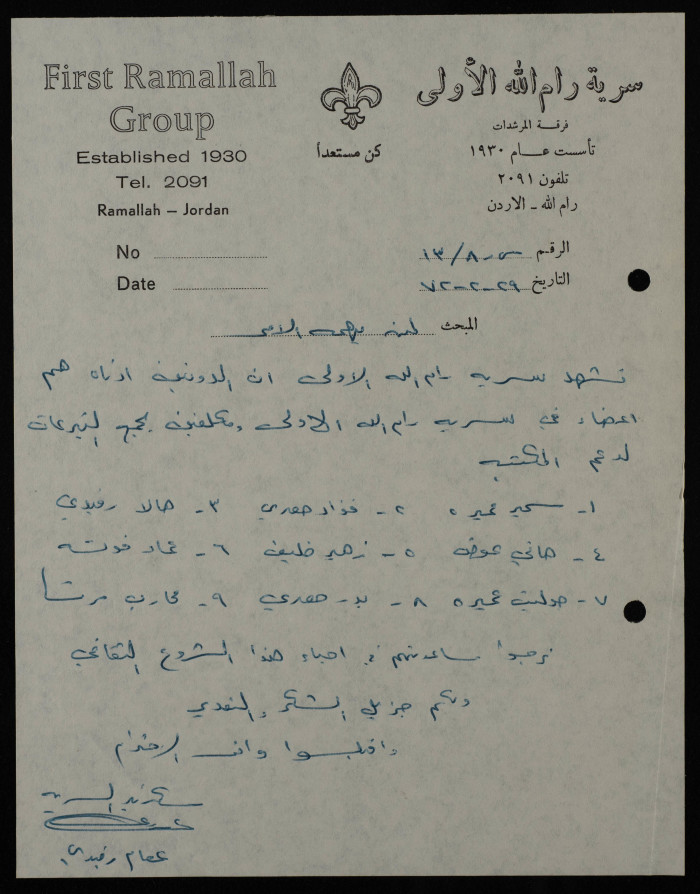 First Ramallah
Group
Established 1930
Tel. 2091
Ramallah – Jordan
No
Date
كن مستعداً
سرية رام الله الأولى
فرقة المرشدات
تأسست عام ١٩٣٠
تلفون ٢٠٩١
رام الله ـ الاردن
الرقم س-٨/١٣
التاريخ ٢٩-٢-٧٢
المبحث لمن يهمه الامر
تشهد سرية رام الله الاولى ان المدونين ادناه هم
اعضاء في سرية رام الله الاولى ومكلفين بجمع التبرعات
لدعم المكتبة
١- سمير عميره ٢- فؤاد صفدي ٣- هالا رفيدي
٤- هاني عوض ٥- زهير خليف ٦- عماد
٧- عميره ٨- صفدي ٩- محارب
نرجوا مساعدتهم في احياء هذا المشروع الثقافي
ولكم جزيل الشكر والتقدير
واقبلوا وافر الاحترام
سكرتير السرية
عصام رفيدي